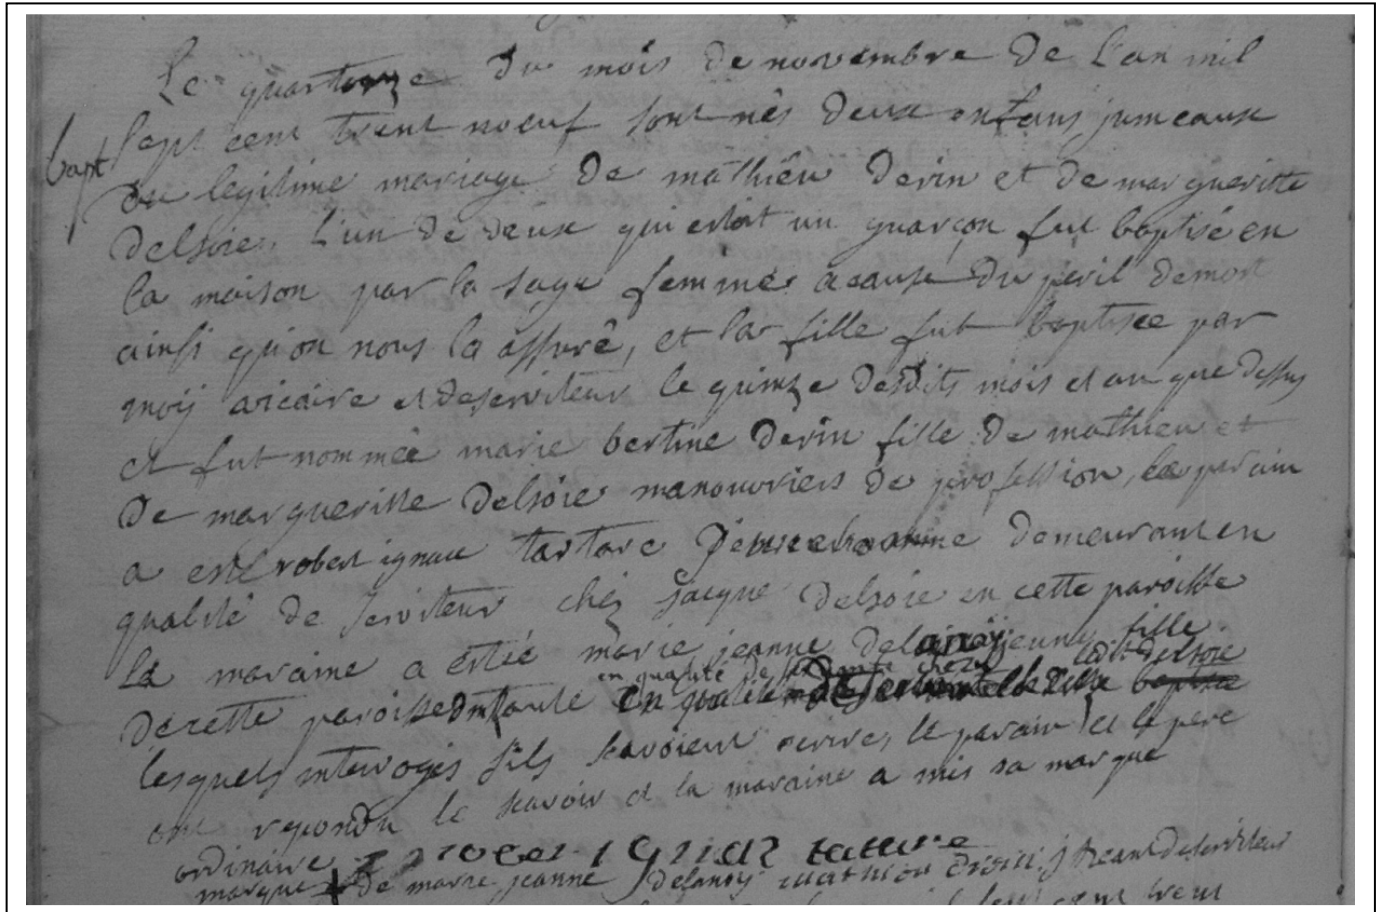 Le quartorze du mois de novembre de L'an mil
bapt
sept cent trent noeuf sont nés deux enfans jumeaux
du legitime mariage de mathieu derin et de margueritte
delsoie, L'un de deux qui estoit un guarçon fut baptisé en
la maison par la sage femme acause du peril demort
ainsi qu'on nous la assuré, et la fille fut baptisee par
moij vicaire et deserviteur le quinze desdits mois et an que dessus
et fut nommée marie bertine derin fille de mathieu et
De margueritte delsoie manouvriers de profession, le parain
a esté robert ignace tartare jeune homme demeurant en
qualité de serviteur chez jacque delsoie en cette paroisse
la maraine a estée marie jeanne delanoÿ jeune fille
en qualité de chez ledit delsoie
decette paroisse
lesquels interrogés s'ils scavoient ecrire, le parain et le pere
ont repondu le scavoir et la maraine a mis sa marque
ordinaire robert ignaz tature
marque de marie jeanne delanoÿ deserviteur